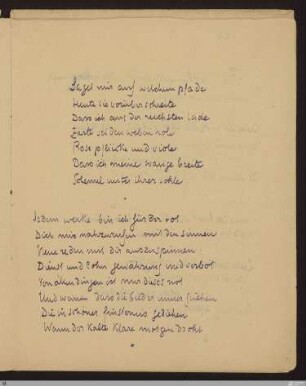 Saget mir auf welchem pfade
Heute sie vorüberschreite
Dass ich aus der reichsten lade
Zarte seidenweben hole
Rose pflücke und viole
Dass ich meine wange breite
Schemel unter ihrer sohle
Jedem werke bin ich fürder tot.
Dich mir nahzurufen mit den sinnen
Neue reden mit dir auszuspinnen
Dienst und lohn gewährung und verbot
Von allen dingen ist nur dieses not
Und weinen dass die bilder immer fliehen
Die in schöner finsternis gediehen
Wann der kalte klare morgen droht